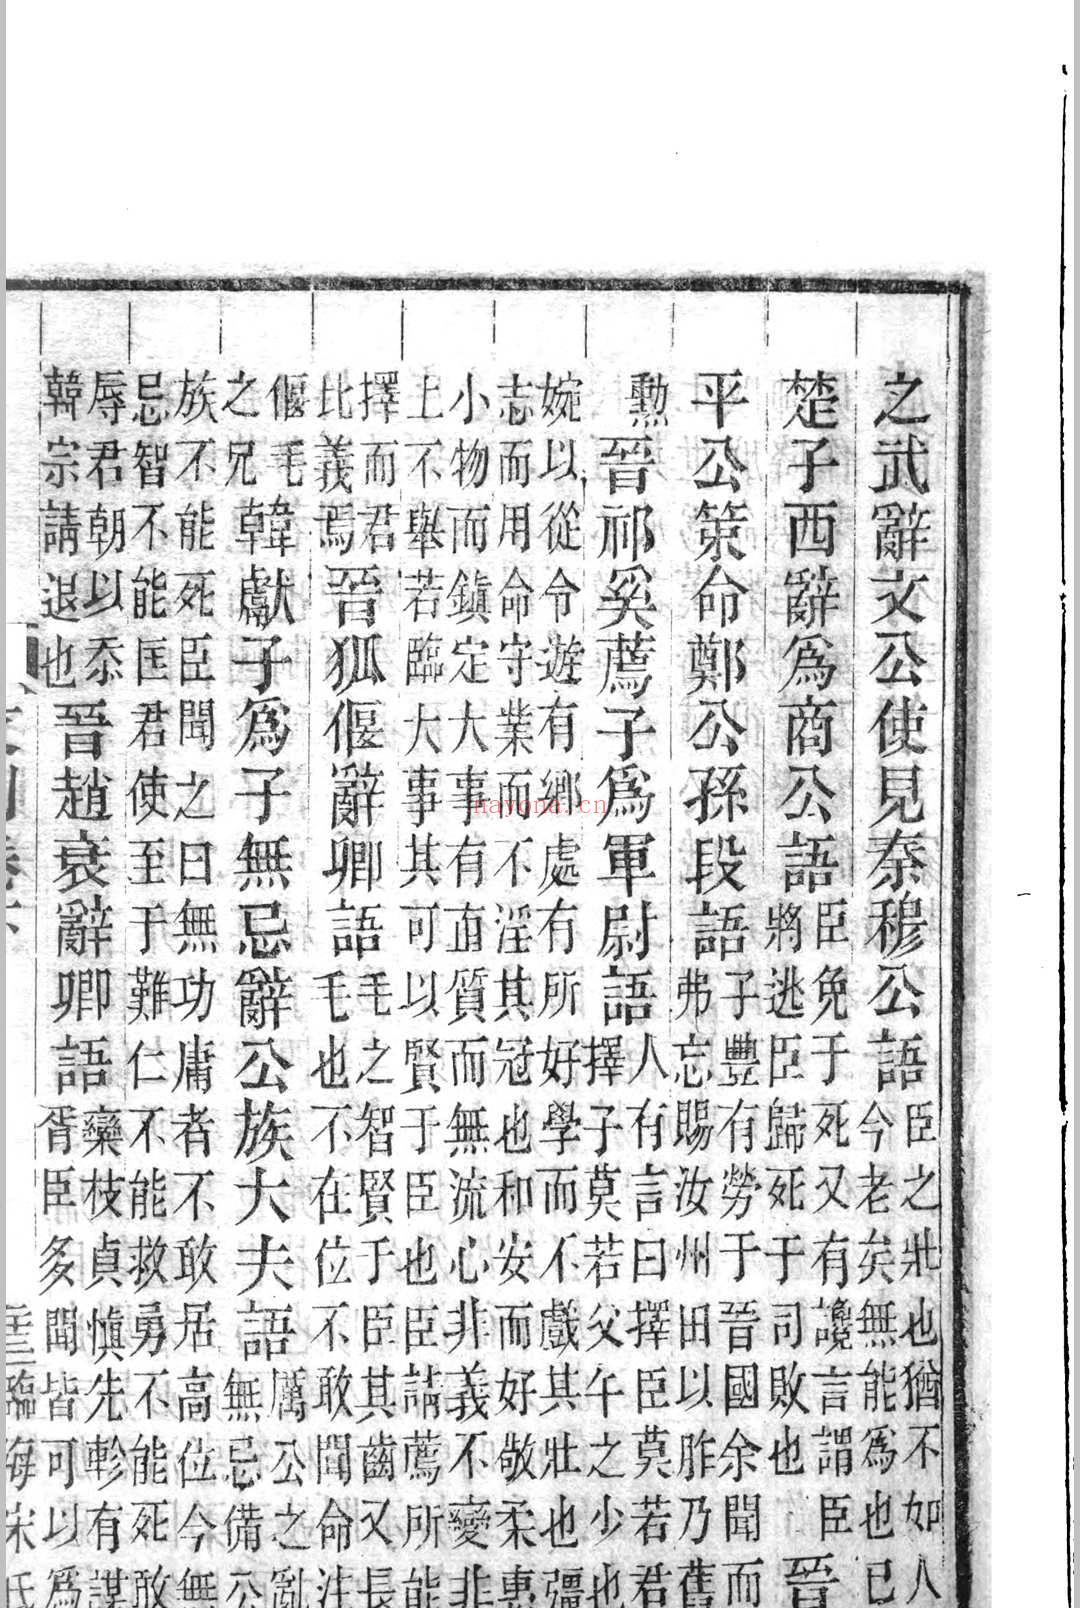 之武辭文公使見秦穆公語臣之壯也猶不如人
今老矣無能爲也已
楚子西辭爲商公語臣免于死又有讒言謂臣
將逃臣歸死于司敗也
晉
平公策命鄭公孫段語子豐有勞于晉國余聞而
弗忘賜汝州田以胙乃舊
勲晉祁奚薦子爲軍尉語人有言曰擇臣莫若君
擇子莫若父午之少也
婉以從令遊有鄉處有所好學而不戲其壯也彊
志而用命守業而不淫其冠也和安而好敬柔惠
小物而鎮定大事有直質而無流心非義不變非
上不舉若臨大事其可以賢于臣也臣請薦所能
擇而君
比義焉
晉狐偃辭卿語毛之智賢于臣其齒又長
毛也不在位不敢聞命注
偃毛
之兄
韓獻子爲子無忌辭公族大夫語厲公之亂
無忌備公
族不能死臣聞之曰無功庸者不敢居高位今無
忌智不能匡君使至于難仁不能救勇不能死敢
辱君朝以忝
韓宗請退也
晉趙衰辭卿語欒枝貞慎先軫有謀
胥臣多聞皆可以爲
臨海宋氏
nayona.cn